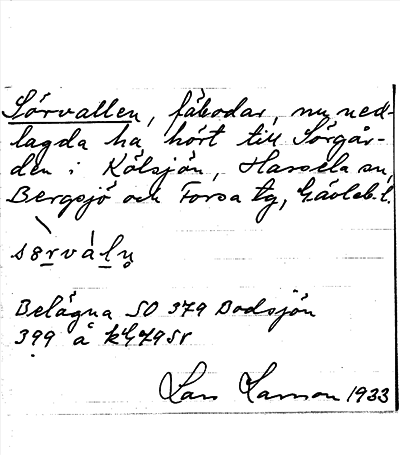 Sörvallen, fäbodar, nu ned-
lagda ha hört till Sörgår-
den i Kölsjön, Hassela sn,
Bergsjö och Forsa tg, Gävleb. l.
Belägna SO 379 Bodsjön
399 å kG79SV
Lars Larsson 1933